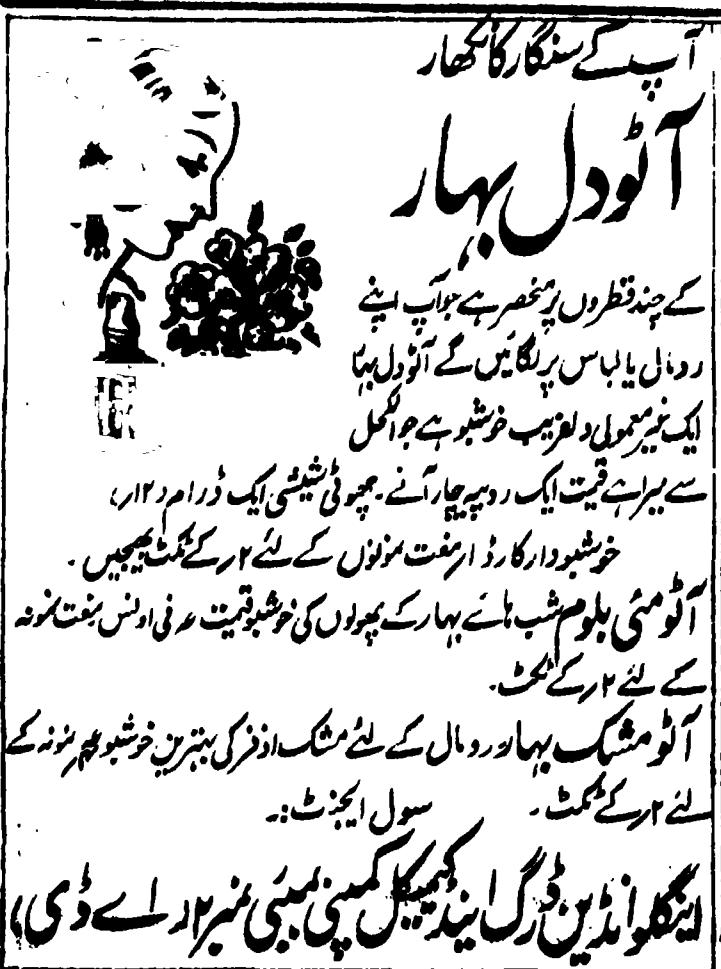 آپ کے سنگار کا نکھار
آٹو دل بہار
کے چند قطروں پر منحصر ہے جو آپ اپنے
رومال یا لباس پر لگائیں گے آٹو دل بہار
ایک غیر معمولی دلفریب خوشبو ہے جو الکحل
سے مبرا ہے قیمت ایک روپیہ چار آنے۔ چھوٹی شیشی ایک ڈرام (۱۲ر)
خوشبودار کارڈ اور مفت نمونوں کے لئے ۲ر کے ٹکٹ بھیجیں۔
آٹو مئی بلوم شب ہائے بہار کے پھولوں کی خوشبو قیمت عہ فی اونس مفت نمونہ
کے لئے ۲ر کے ٹکٹ۔
آٹو مشک بہار رومال کے لئے مشک اذفر کی بہترین خوشبو نمونہ کے
لئے ۲ر کے ٹکٹ۔ سول ایجنٹ:۔
اینگلو انڈین ڈرگ اینڈ کیمیکل کمپنی بمبئی نمبر ۲ (اے ڈی)